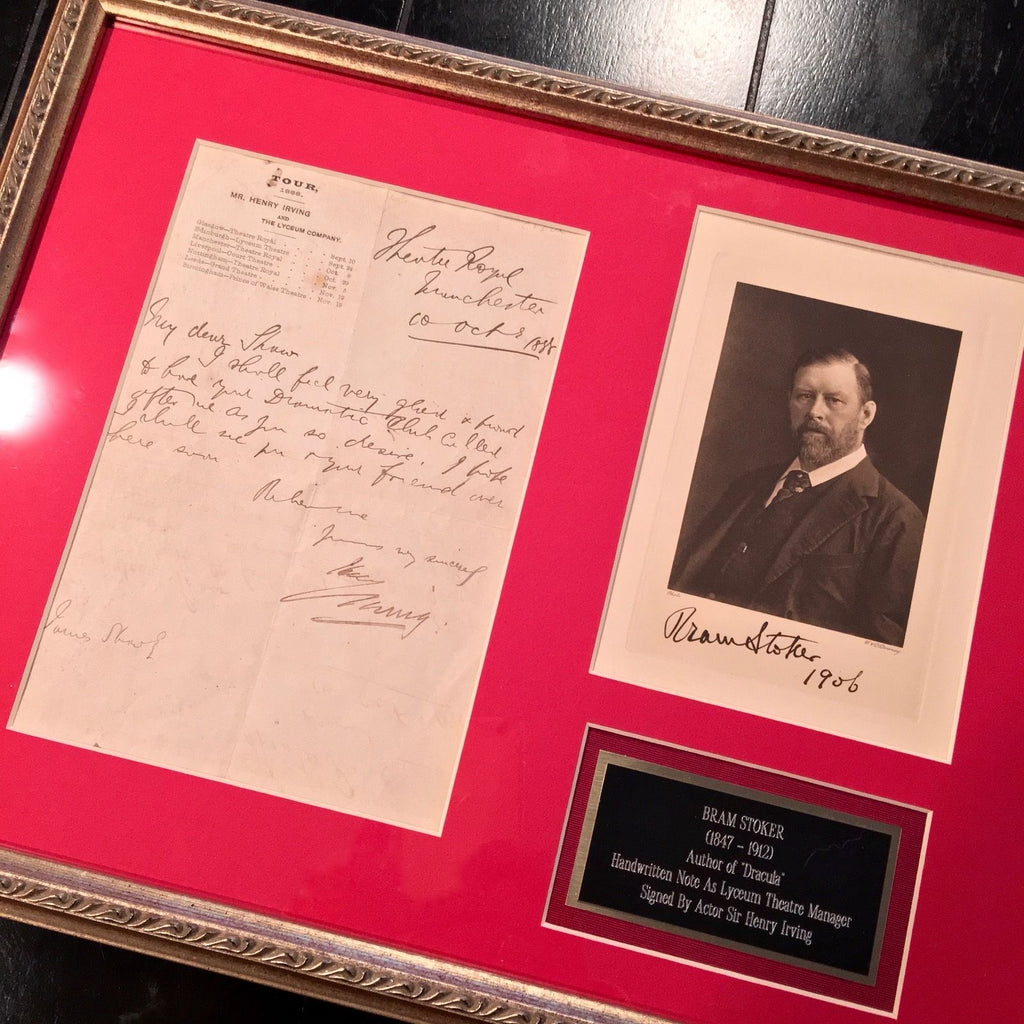 TOUR,
1888.
MR. HENRY IRVING
AND
THE LYCEUM COMPANY.
Glasgow—Theatre Royal . . Sept. 10
Edinburgh—Lyceum Theatre . . Sept. 24
Manchester—Theatre Royal . . Oct. 8
Liverpool—Court Theatre . . Oct. 29
Nottingham—Theatre Royal . . Nov. 5
Leeds—Grand Theatre . . Nov. 12
Birmingham—Prince of Wales Theatre . Nov. 19
Theatre Royal
Manchester
Oct 1888
My dear Shaw
I shall feel very glad & proud
to have your Dramatic Club called
after me as you so desire. I hope
I shall see you & your friend over
here soon.
Believe me
Yours very sincerely
Henry Irving
James Shaw
Bram Stoker
1906
BRAM STOKER
(1847 – 1912)
Author of "Dracula"
Handwritten Note As Lyceum Theatre Manager
Signed By Actor Sir Henry Irving